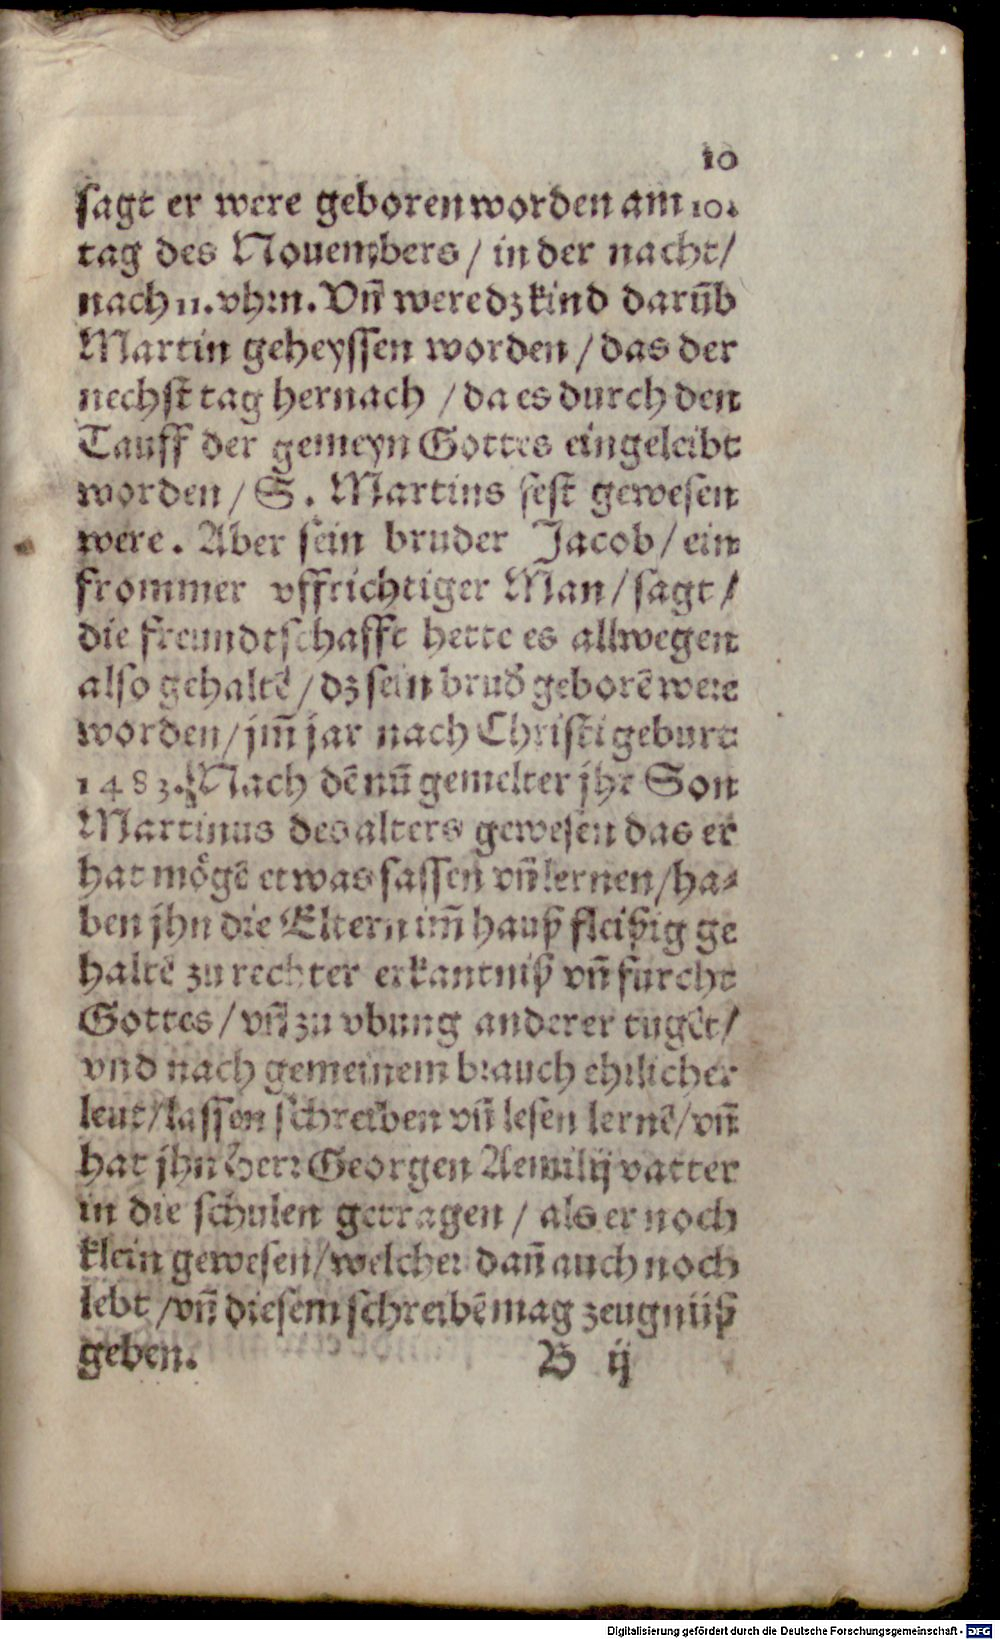 10
sagt er were geboren worden am 10.
tag des Nouembers / in der nacht /
nach 11. vhrn. Vn̄ were dz kind darūb
Martin geheyssen worden / das der
nechst tag hernach / da es durch den
Tauff der gemeyn Gottes eingeleibt
worden / S. Martins fest gewesen
were. Aber sein bruder Jacob / ein
frommer vffrichtiger Man / sagt /
die freundtschafft hette es allwegen
also gehaltē / dz sein brud̕ geborē were
worden / jm̄ jar nach Christi geburt
1483. Nach dē nū gemelter jhr Son
Martinus des alters gewesen das er
hat mögē etwas fassen vn̄ lernen / ha⸗
ben jhn die Eltern im̄ hauß fleißig ge
haltē zu rechter erkantniß vn̄ furcht
Gottes / vn̄ zu vbung anderer tugēt /
vnd nach gemeinem brauch ehrlicher
leut / lassen schreiben vn̄ lesen lernē / vn̄
hat jhn Herr Georgen Aemilij vatter
in die schulen getragen / als er noch
klein gewesen / welcher dan̄ auch noch
lebt / vn̄ diesem schreibē mag zeugnüß
geben. B ij
Digitalisierung gefördert durch die Deutsche Forschungsgemeinschaft - DFG